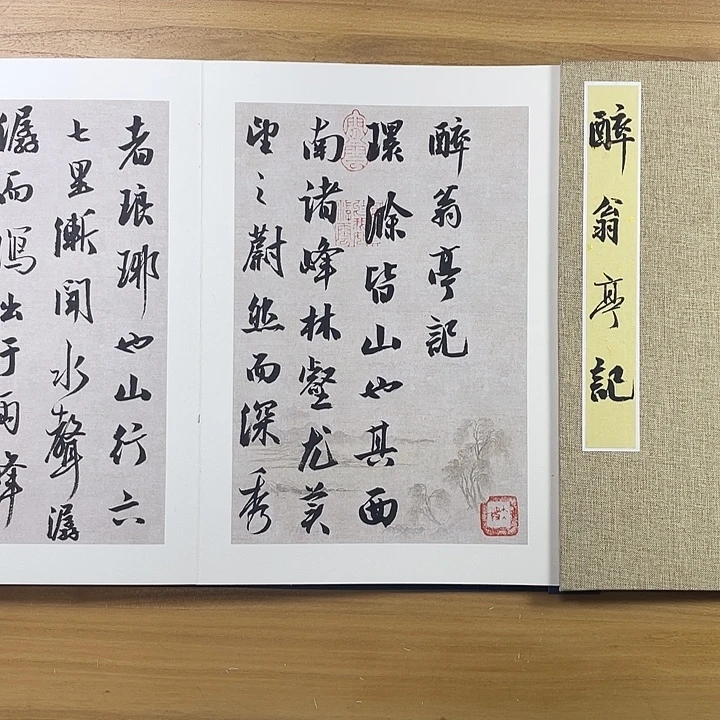 醉翁亭記
醉翁亭記
環滁皆山也其西
南諸峰林壑尤美
望之蔚然而深秀
者琅琊也山行六
七里漸聞水聲潺
潺而瀉出于兩峰